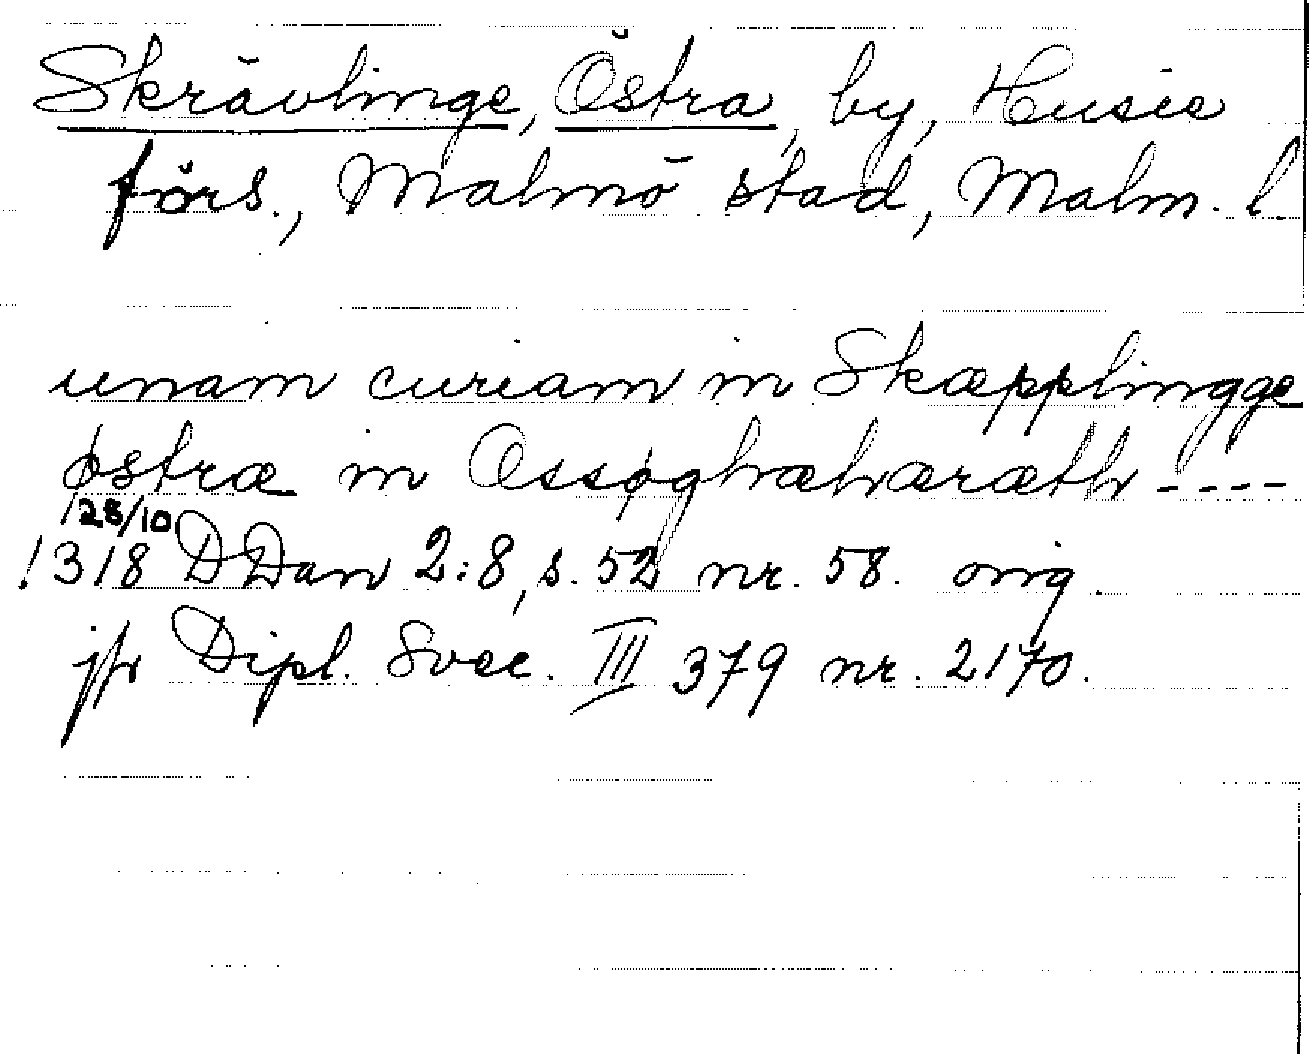 Skrävlinge, Östra, by, Husie
förs., Malmö stad, Malm. l.
unam curiam in Skæpplingge
østræ in Ossøghæhæræth ----
28/10
1318 DDan 2:8, s. 52 nr. 58. orig.
jfr Dipl. Svec. III 379 nr. 2170.